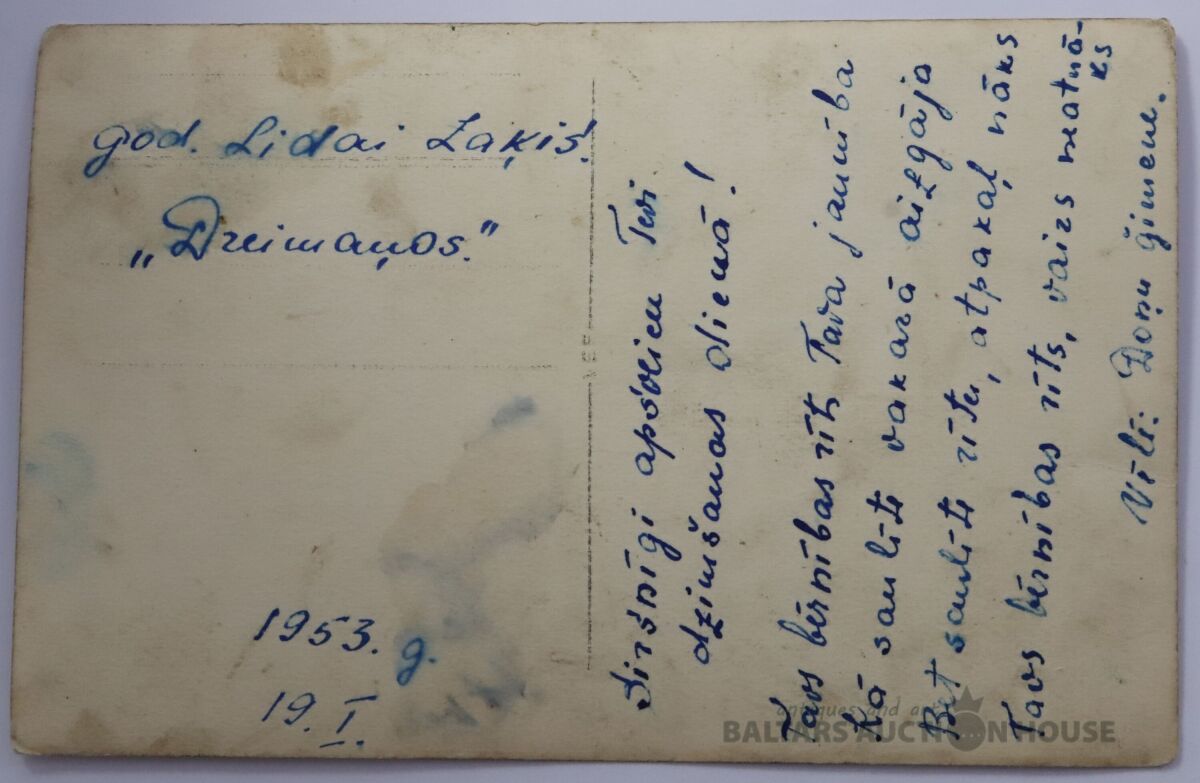 god. Lidai Zaķis.
„Dreimaņos."
1953. g.
19. I.
Sirsnīgi apsveicu Tevi
dzimšanas dienā!
Tavs bērnības rīts Tava jaunība
Kā saulīte vakarā aizgāja
Bet saulīte rītu, atpakaļ nāks
Tavs bērnības rīts, vairs neatnā-
ks
Vēlē: Doņu ģimene.
antiques and art
BALTARS AUCTION HOUSE